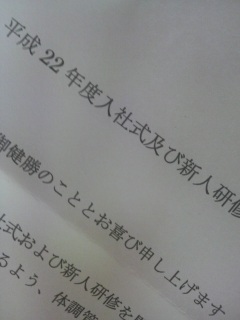 平成22年度入社式及び新人研修
御健勝のこととお喜び申し上げます
社式および新人研修を
るよう、体調管